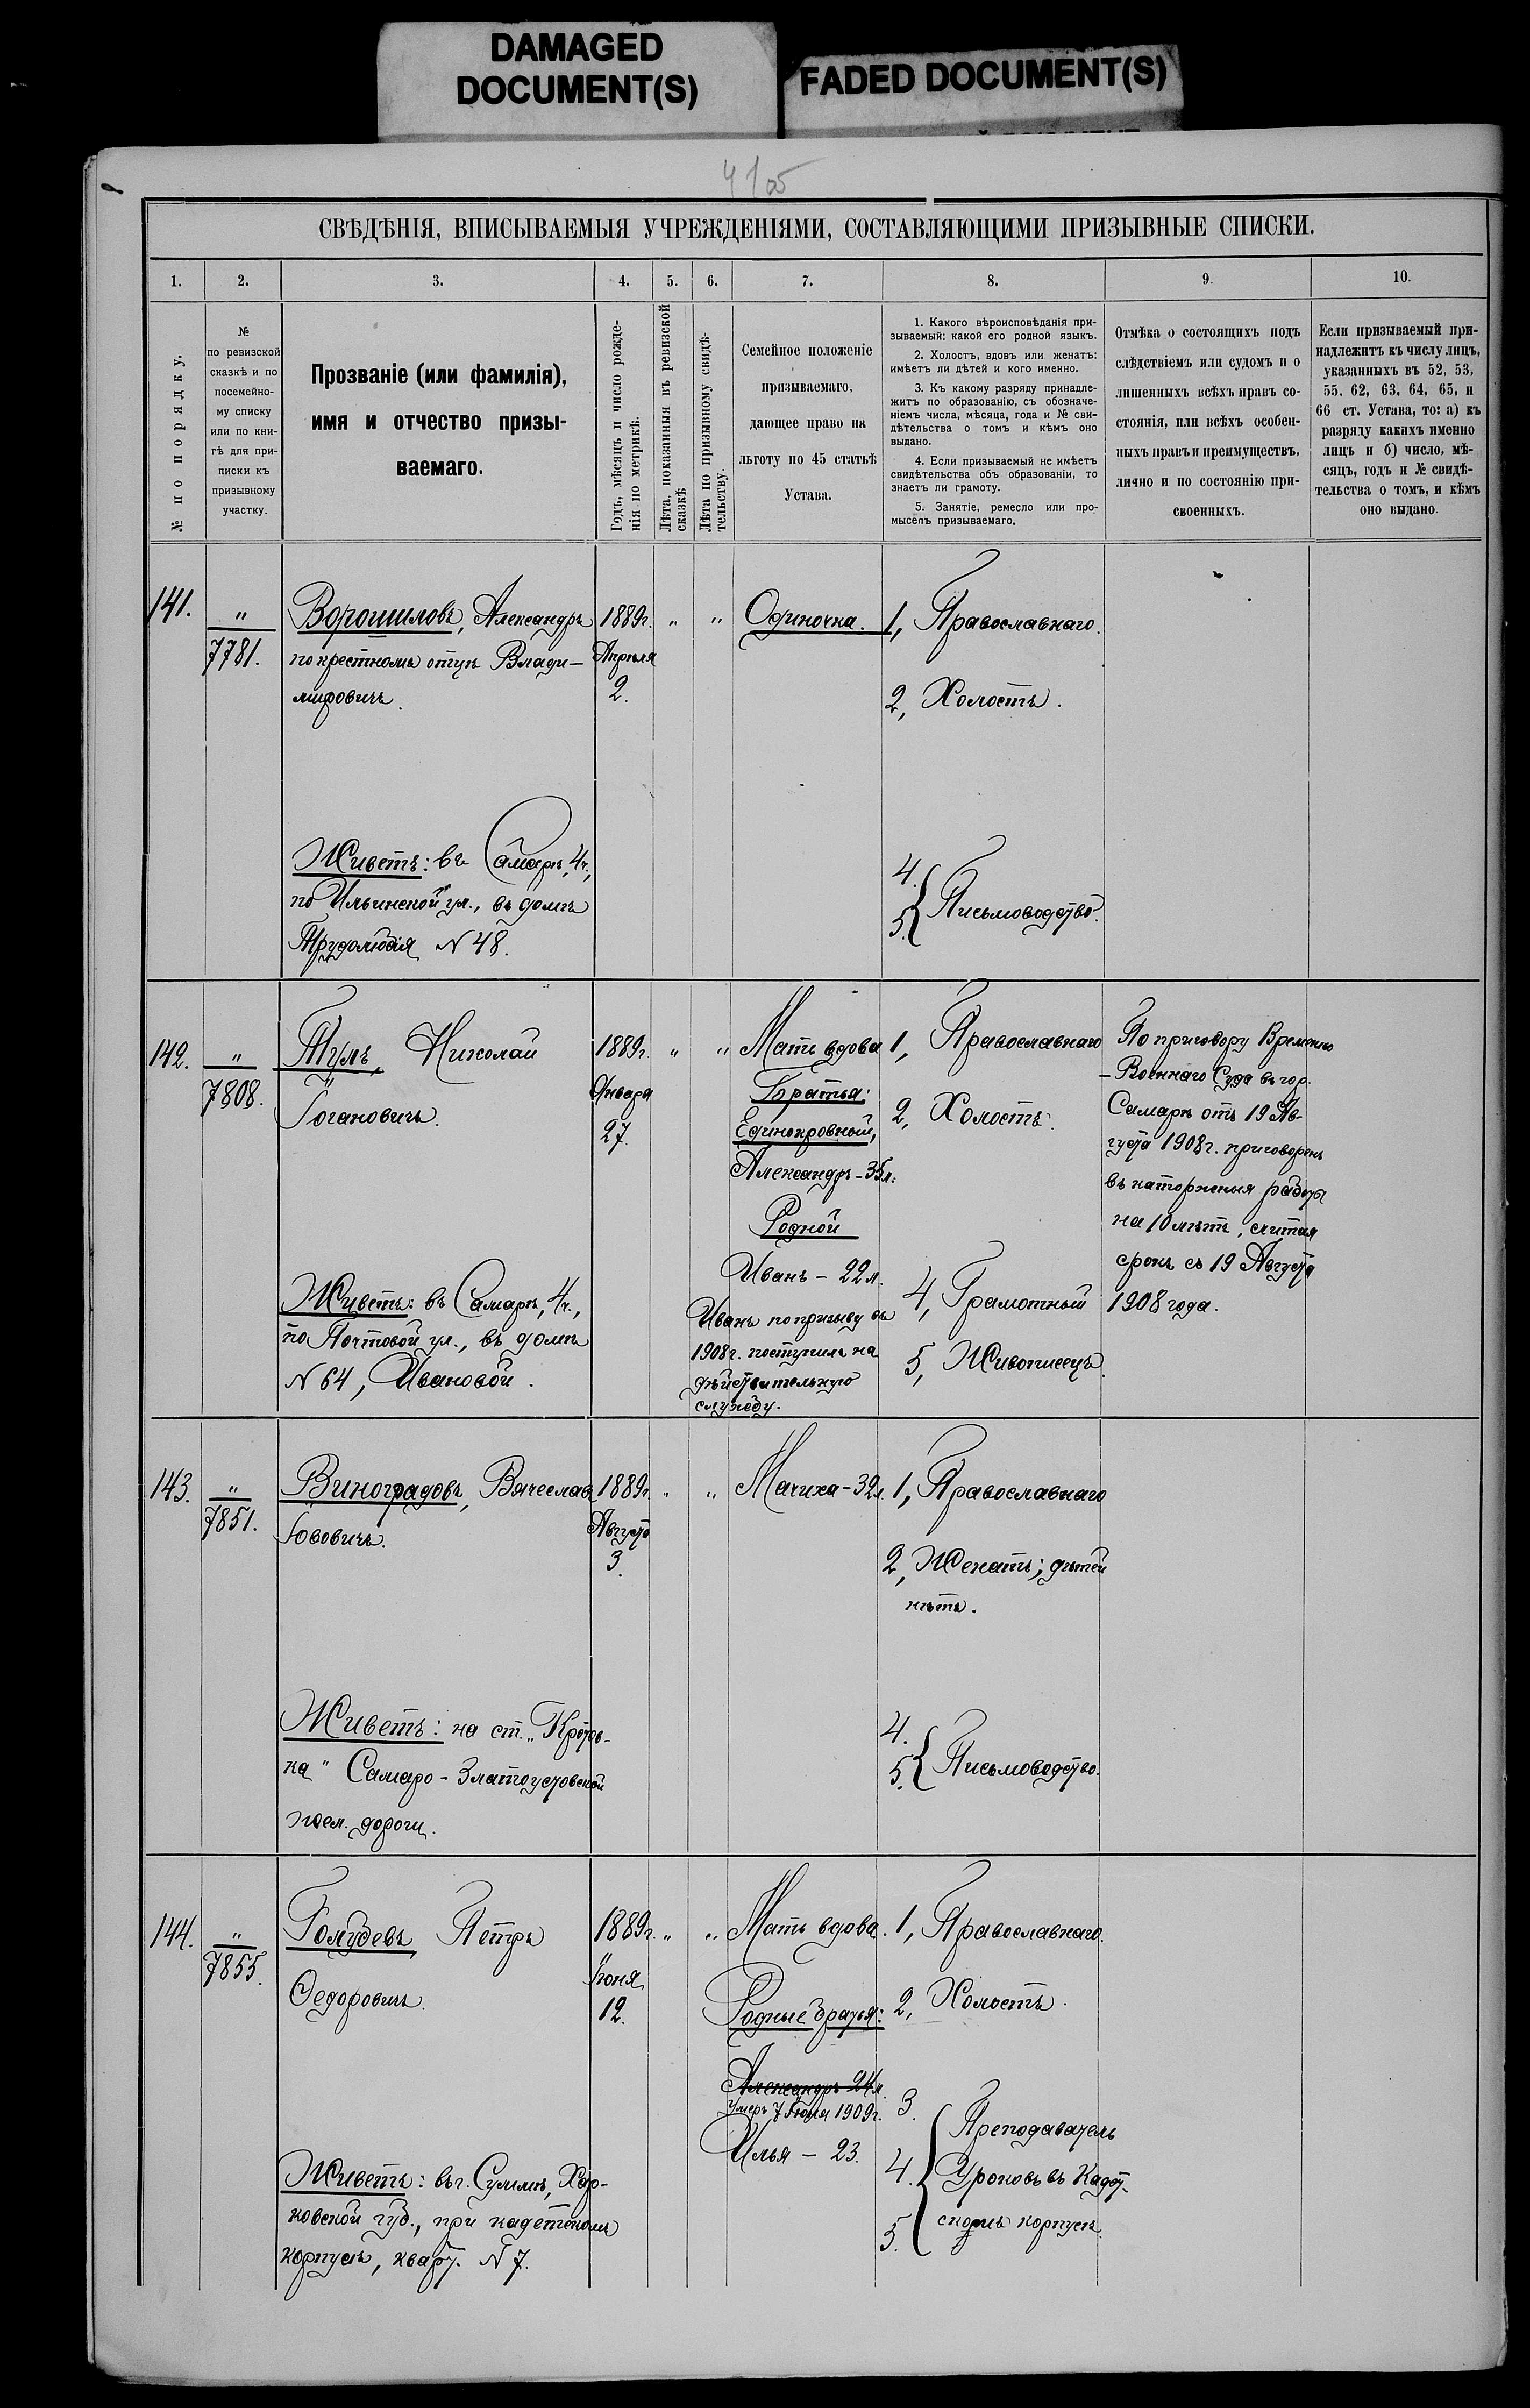 DAMAGED
DOCUMENT(S)
FADED DOCUMENT(S)
СВѢДѢНІЯ, ВПИСЫВАЕМЫЯ УЧРЕЖДЕНІЯМИ, СОСТАВЛЯЮЩИМИ ПРИЗЫВНЫЕ СПИСКИ.
1.
2.
3.
4.
5.
6.
7.
8.
9.
10.
№ по порядку.
№
по ревизской
сказкѣ и по
посемейно-
му списку
или по кни-
гѣ для при-
писки къ
призывному
участку.
Прозваніе (или фамилія),
имя и отчество призы-
ваемаго.
Годъ, мѣсяцъ и число рожде-
нія по метрикѣ.
Лѣта, показанныя въ ревизской
сказкѣ
Лѣта по призывному свидѣ-
тельству.
Семейное положеніе
призываемаго,
дающее право на
льготу по 45 статьѣ
Устава.
1. Какого вѣроисповѣданія при-
зываемый: какой его родной языкъ.
2. Холостъ, вдовъ или женатъ:
имѣетъ ли дѣтей и кого именно.
3. Къ какому разряду принадле-
житъ по образованію, съ обозначе-
ніемъ числа, мѣсяца, года и № сви-
дѣтельства о томъ и кѣмъ оно
выдано.
4. Если призываемый не имѣетъ
свидѣтельства объ образованіи, то
знаетъ ли грамоту.
5. Занятіе, ремесло или про-
мыселъ призываемаго.
Отмѣка о состоящихъ подъ
слѣдствіемъ или судомъ и о
лишенныхъ всѣхъ правъ со-
стоянія, или всѣхъ особен-
ныхъ правъ и преимуществъ,
лично и по состоянію при-
своенныхъ.
Если призываемый при-
надлежитъ къ числу лицъ,
указанныхъ въ 52, 53,
55. 62, 63, 64, 65, и
66 ст. Устава, то: а) къ
разряду какихъ именно
лицъ и б) число, мѣ-
сяцъ, годъ и № свидѣ-
тельства о томъ, и кѣмъ
оно выдано.
141.
"
7781.
Ворошиловъ, Александръ
по крестному отцу Влади-
мировичъ.
Живетъ: въ Самарѣ, 4ч.,
по Ильинской ул., въ домѣ
Трудолюбія N 48.
1889г.
Апрѣля
2.
"
"
Одиночка.
1, Православнаго.
2, Холостъ.
4.
5. Письмоводство.
142.
"
7808.
Тумъ, Николай
Іогановичъ.
Живетъ: въ Самарѣ, 4ч.,
по Почтовой ул., въ домѣ
N 64, Ивановой.
1889г.
Января
27.
"
"
Мать вдова
Братья:
Единокровный,
Александръ - 35л.
Родной
Иванъ - 22 л.
Иванъ по призыву въ
1908г. поступилъ на
дѣйствительную
службу.
1, Православнаго
2, Холостъ.
4, Грамотный
5, Живописецъ.
По приговору Временно
- Военнаго Суда въ гор.
Самарѣ отъ 19 Ав-
густа 1908г. приговоренъ
въ каторжныя работы
на 10 лѣтъ, считая
срокъ съ 19 Августа
1908 года.
143.
"
7851.
Виноградовъ, Вячеславъ
Іововичъ.
Живетъ: на ст. „Кротов-
ка" Самаро-Златоустовской
жел. дороги.
1889г.
Августа
3.
"
"
Мачиха - 32л.
1, Православнаго
2, Женатъ; дѣтей
нѣтъ.
4.
5. Письмоводство.
144.
"
7855.
Голубевъ Петръ
Ѳедоровичъ.
Живетъ: въ г. Сумахъ, Хар-
ковской губ., при кадетскомъ
корпусѣ, кварт. N 7.
1889г.
Іюня
12.
"
"
Мать вдова.
Родные братья:
Александръ 24л.
Умеръ 7 Іюля 1909г.
Илья - 23.
1, Православнаго.
2, Холостъ.
3.
4.
5.
Преподаватель
Уроковъ въ Кадет-
скомъ корпусѣ.